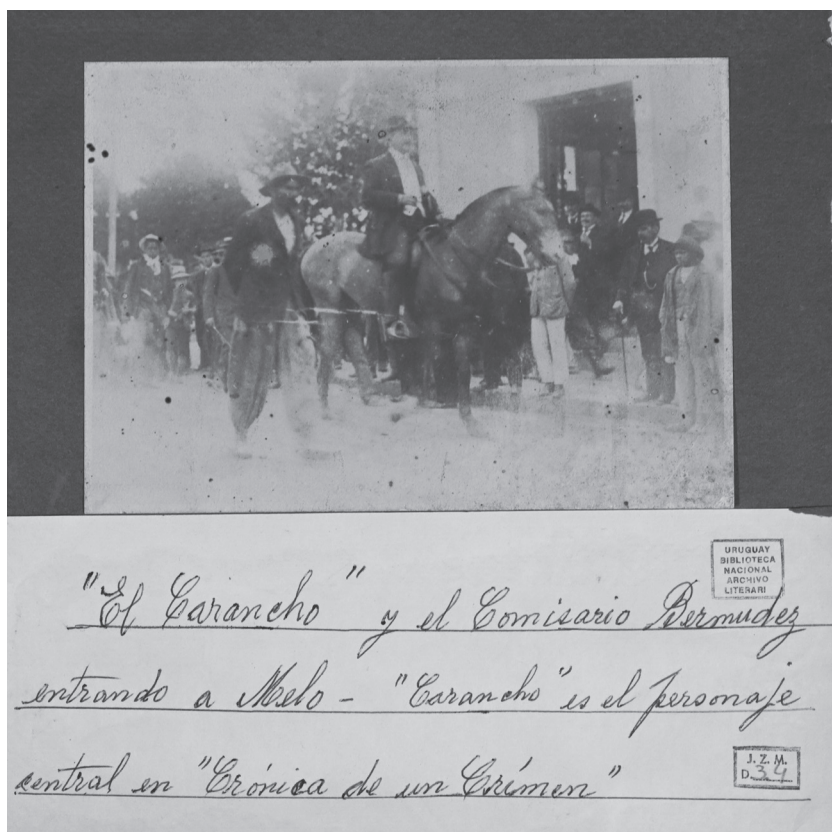 URUGUAY
BIBLIOTECA
NACIONAL
ARCHIVO
LITERARI
"El Carancho" y el Comisario Bermudez
entrando a Melo - "Carancho" es el personaje
central en "Crónica de un Crímen"
J. Z. M.
D. 34